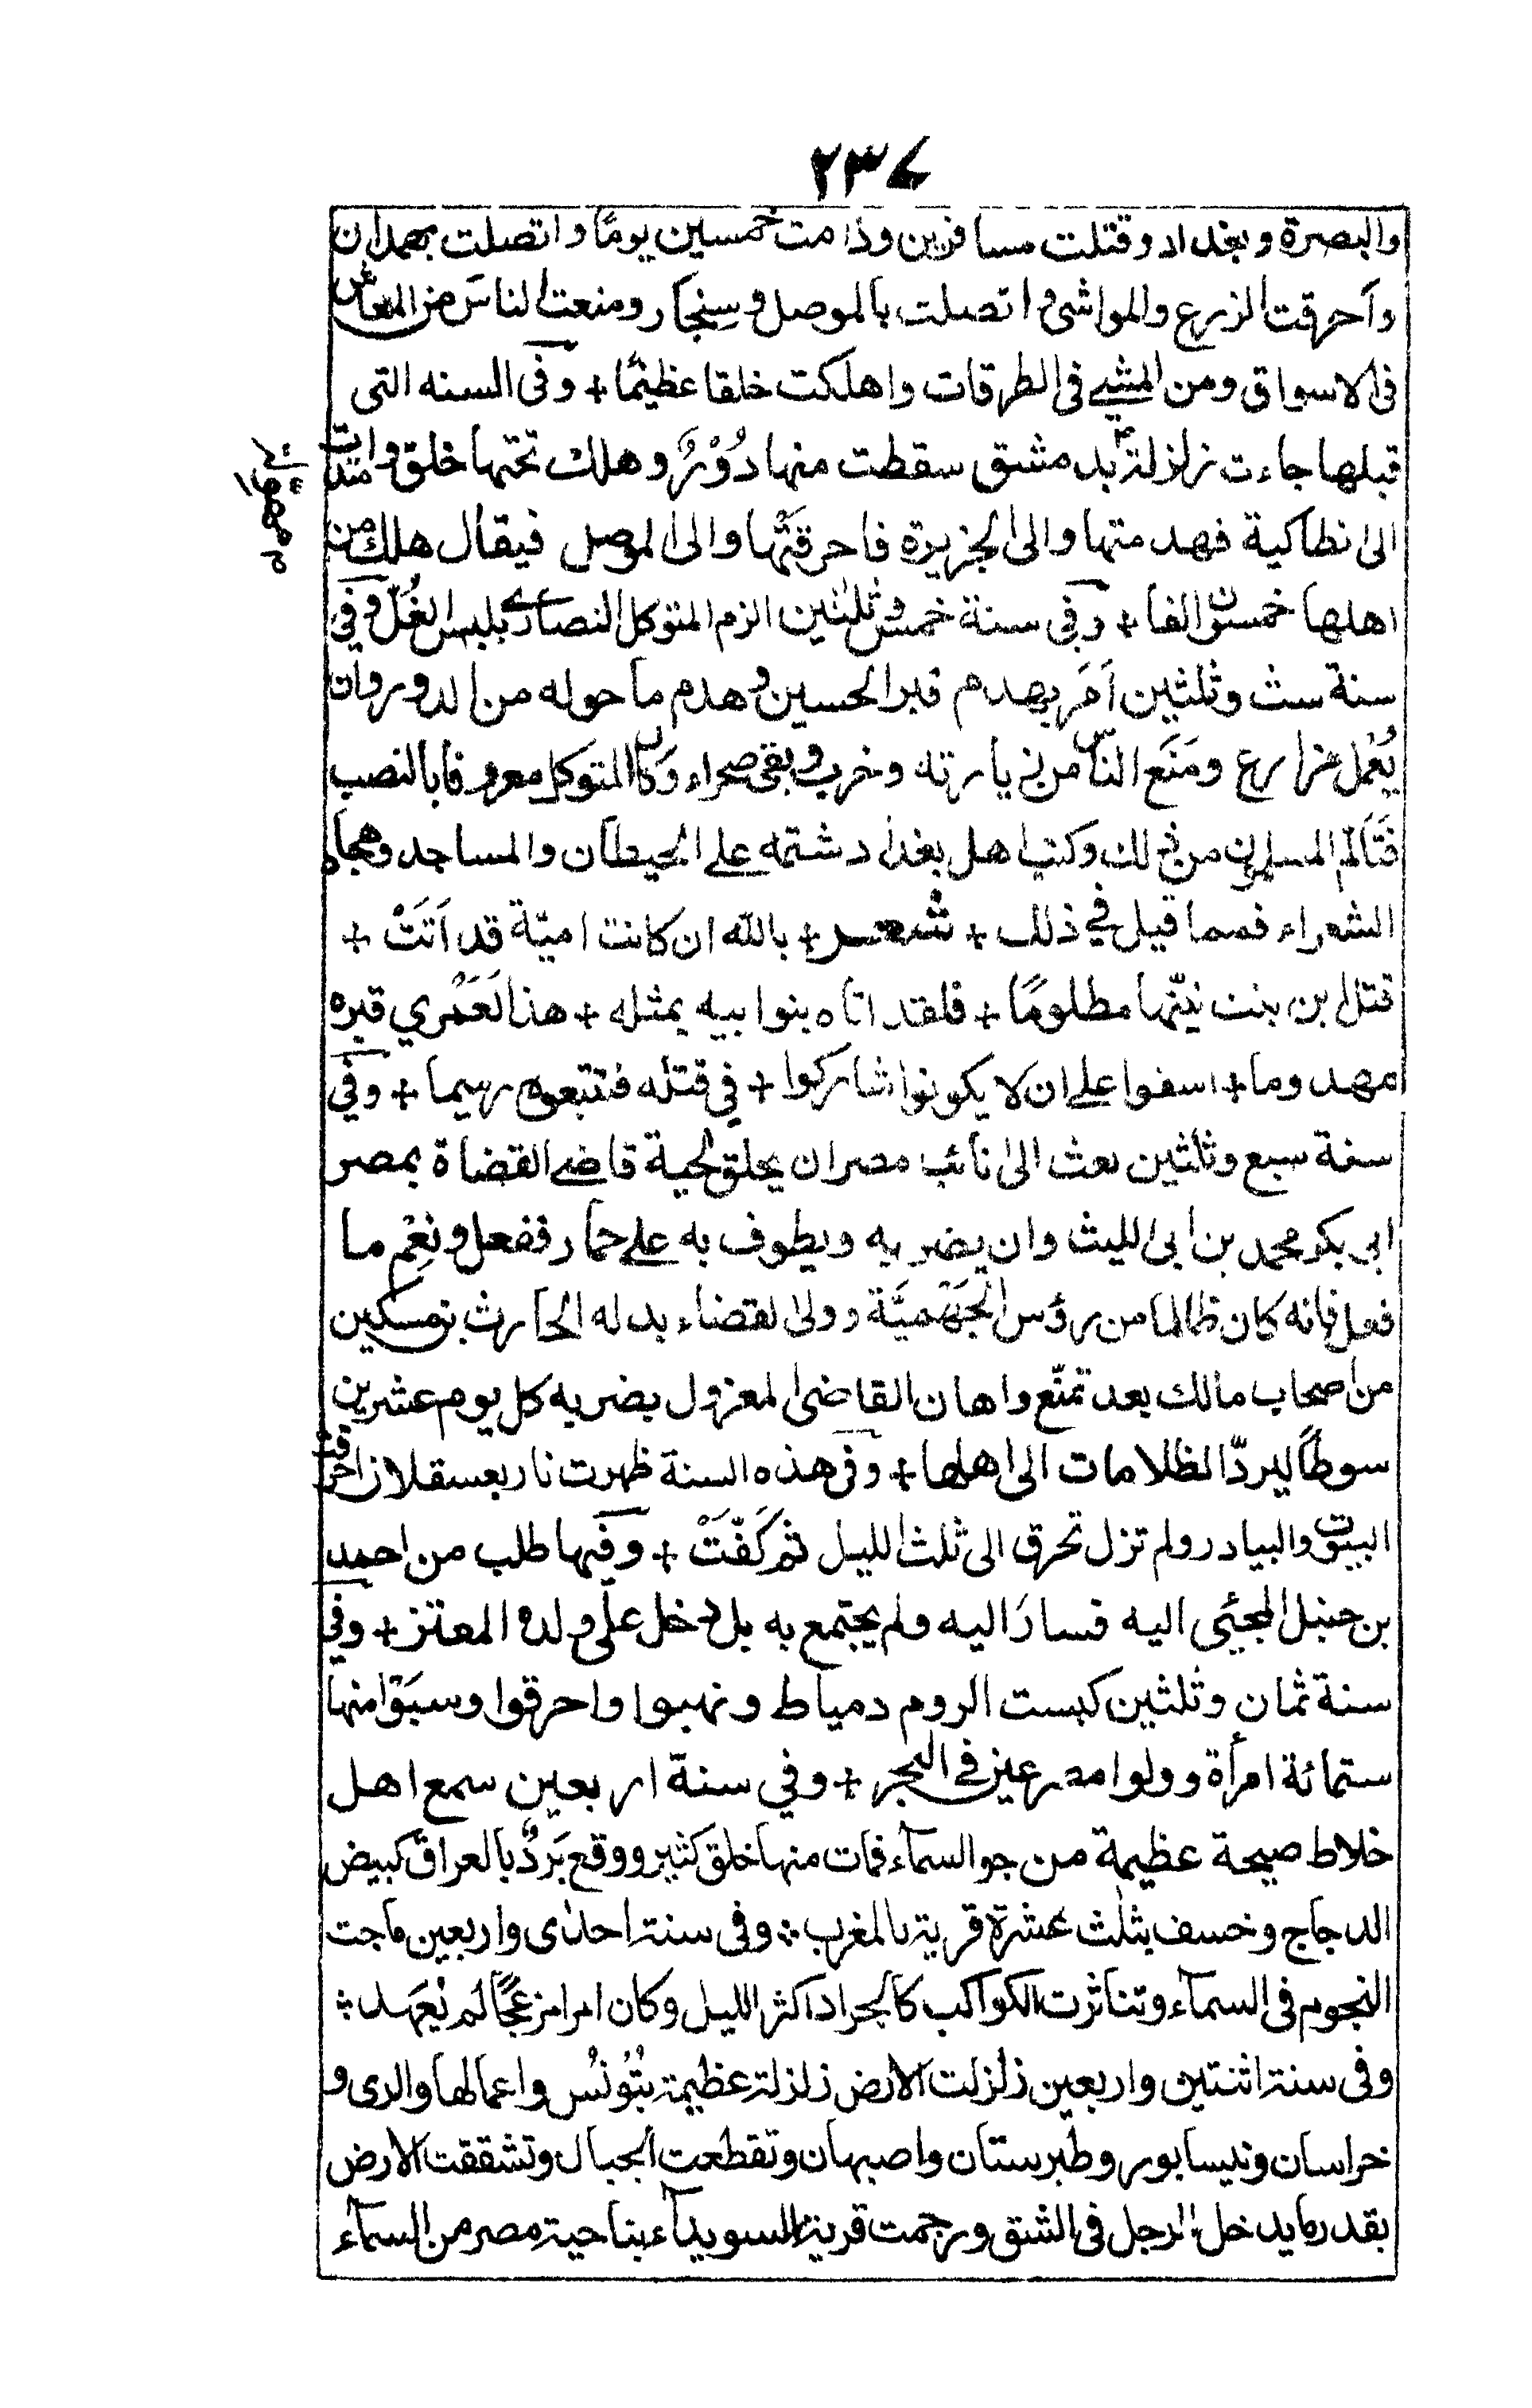 ٢٣٧
والبصرة وبغداد وقتلت مسافرين ودامت خمسين يومًا واتصلت بهمدان
وأحرقت الزرع والمواشى واتصلت بالموصل وسِنجار ومنعت الناسَ من المعاش
فى الاسواق ومن المشي فى الطرقات واهلكت خلقا عظيمًا + وفى السنه التى
قبلها جاءت زلزلة بدمشق سقطت منها دُوْرٌ وهلك تحتها خلق وامتدت
الى انطاكية فهدمتها والى الجزيرة فاحرقَتْها والى الموصل فيقال هلك من
اهلها خمسون الفا + وفى سنة خمس وثلثين الزم المتوكل النصارى بلبس الغُلّ وفي
سنة ست وثلثين اَمَر بهدم قبر الحسين وهدم ما حوله من الدور وان
يُعْمل مزارع ومَنَع الناس من زيارته وخرب وبقى صحراء وكان المتوكل معروفا بالنصب
فَتَألم المسلمون من ذلك وكتب اهل بغداد شتمه على الحيطان والمساجد وهجاه
الشعراء فمما قيل في ذلك + شعر + بالله ان كانت اميّة قد اَتَتْ +
قتل ابن بنت نبيّها مظلومًا + فلقد اتاه بنوا بيه بمثله + هذا لَعَمْري قبره
مهدوما + اسفوا على ان لا يكونوا شاركوا + في قتله فتتبعوه رميما + وفي
سنة سبع وثلثين بعث الى نائب مصر ان يحلق لحية قاضي القضاة بمصر
ابى بكر محمد بن ابى الليث وان يضربه ويطوف به على حمار ففعل ونِعْم ما
فعل فإنه كان ظالما من رؤس الجَهْميَّة وولى القضاء بدله الحارث بن مسكين
من اصحاب مالك بعد تمنّع واهان القاضى المعزول بضربه كل يوم عشرين
سوطًا ليردّ الظلامات الى اهلها + وفى هذه السنة ظهرت نار بعسقلان احرقت
البيوت والبيادر ولم تزل تحرق الى ثلث الليل ثم كَفّتَْ + وفيها طلب من احمد
بن حنبل المجئى اليه فسارَ اليه ولم يجتمع به بل دخل على ولده المعتز + وفي
سنة ثمان وثلثين كبست الروم دمياط ونهبوا واحرقوا وسبَوْا منها
ستمائة امرأة وولوا مسرعين فى البحر + وفي سنة اربعين سمع اهل
خلاط صيحة عظيمة من جو السمآء فمات منها خلق كثير ووقع بَرَدٌ بالعراق كبيض
الدجاج وخسف بثلث عشرة قرية بالمغرب ÷ وفى سنة احدى واربعين ماجت
النجوم فى السمآء وتناثرت الكواكب كالجراد اكثر الليل وكان امرا مزعجًا لم يُعهَد ÷
وفى سنة اثنتين واربعين زلزلت الارض زلزلة عظيمة بتُونُس واعمالها والرى و
خراسان ونيسابور وطبرستان واصبهان وتقطعت الجبال وتشققت الارض
بقدر ما يدخل الرجل فى الشق ورجمت قرية السويدآء بناحية مصر من السمآء